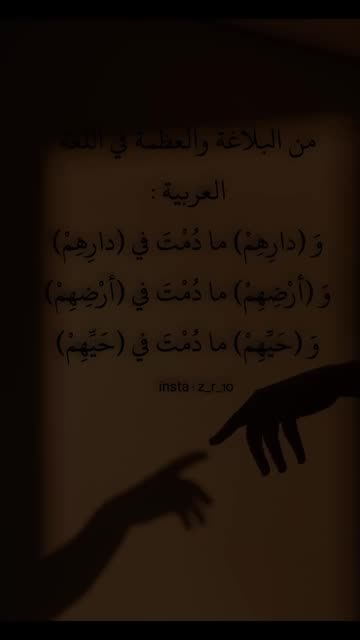 من البلاغة والعظمة في اللغة
العربية :
وَ (دارِهِمْ) ما دُمْتَ في (دارِهِمْ)
وَ (أرْضِهِمْ) ما دُمْتَ في (أرْضِهِمْ)
وَ (حَيِّهِمْ) ما دُمْتَ في (حَيِّهِمْ)
insta : z_r_10